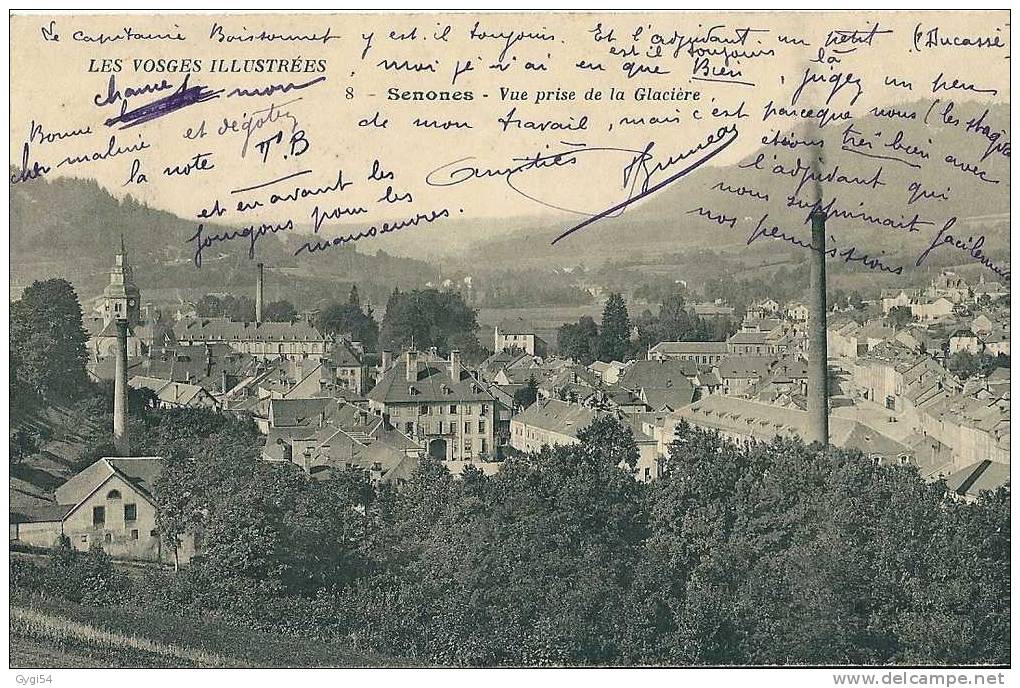 Le capitaine Boissonnet y est-il toujours. Et l'adjudant un petit (Ducassé
est il toujours là
LES VOSGES ILLUSTRÉES
moi je n'ai eu que Bien, jugez un peu
8 - Senones - Vue prise de la Glacière
de mon travail, mais c'est parceque nous (les stag
étions très bien avec
l'adjudant qui
nous supprimait facilement
nos permissions
Amitiés
Bonne chance mon
cher maline et dégotez
la note T.B
et en avant les
fourgons pour les
manoeuvres.
Gygi54
http://www.delcampe.net